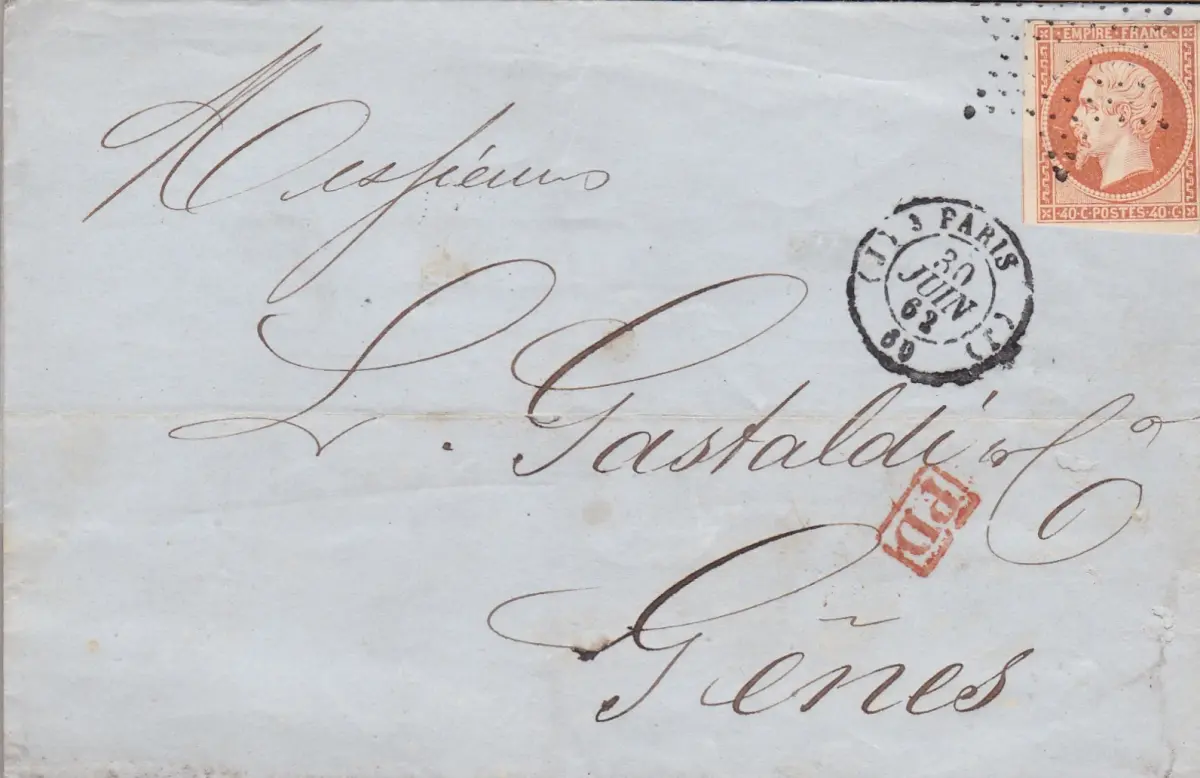 EMPIRE FRANC
40·C·POSTES·40·C
Messieurs
(J) 3 PARIS (3)
30
JUIN
62
60
L. Gastaldi & Cº
PD
Gênes